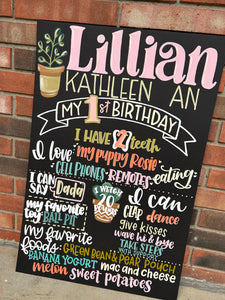 Lillian
KATHLEEN AN
MY 1st BIRTHDAY
I HAVE 2 teeth
I love my puppy Rosie
CELL PHONES - REMOTES - eating
I CAN SAY Dada
I WEIGH 20
I can
CLAP dance
give kisses
wave hi & bye
TAKE STEPS
my favorite toy BALL PIT
my favorite foods: GREEN BEAN & PEAR POUCH
BANANA YOGURT mac and cheese
melon sweet potatoes